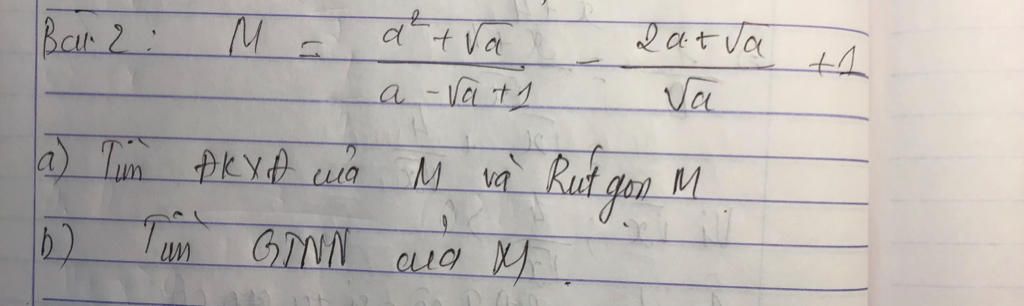 Bài 2 : M = (a² + √a)/(a - √a + 1) - (2a + √a)/√a + 1
a) Tìm ĐKXĐ của M và Rút gọn M
b) Tìm GTNN của M.